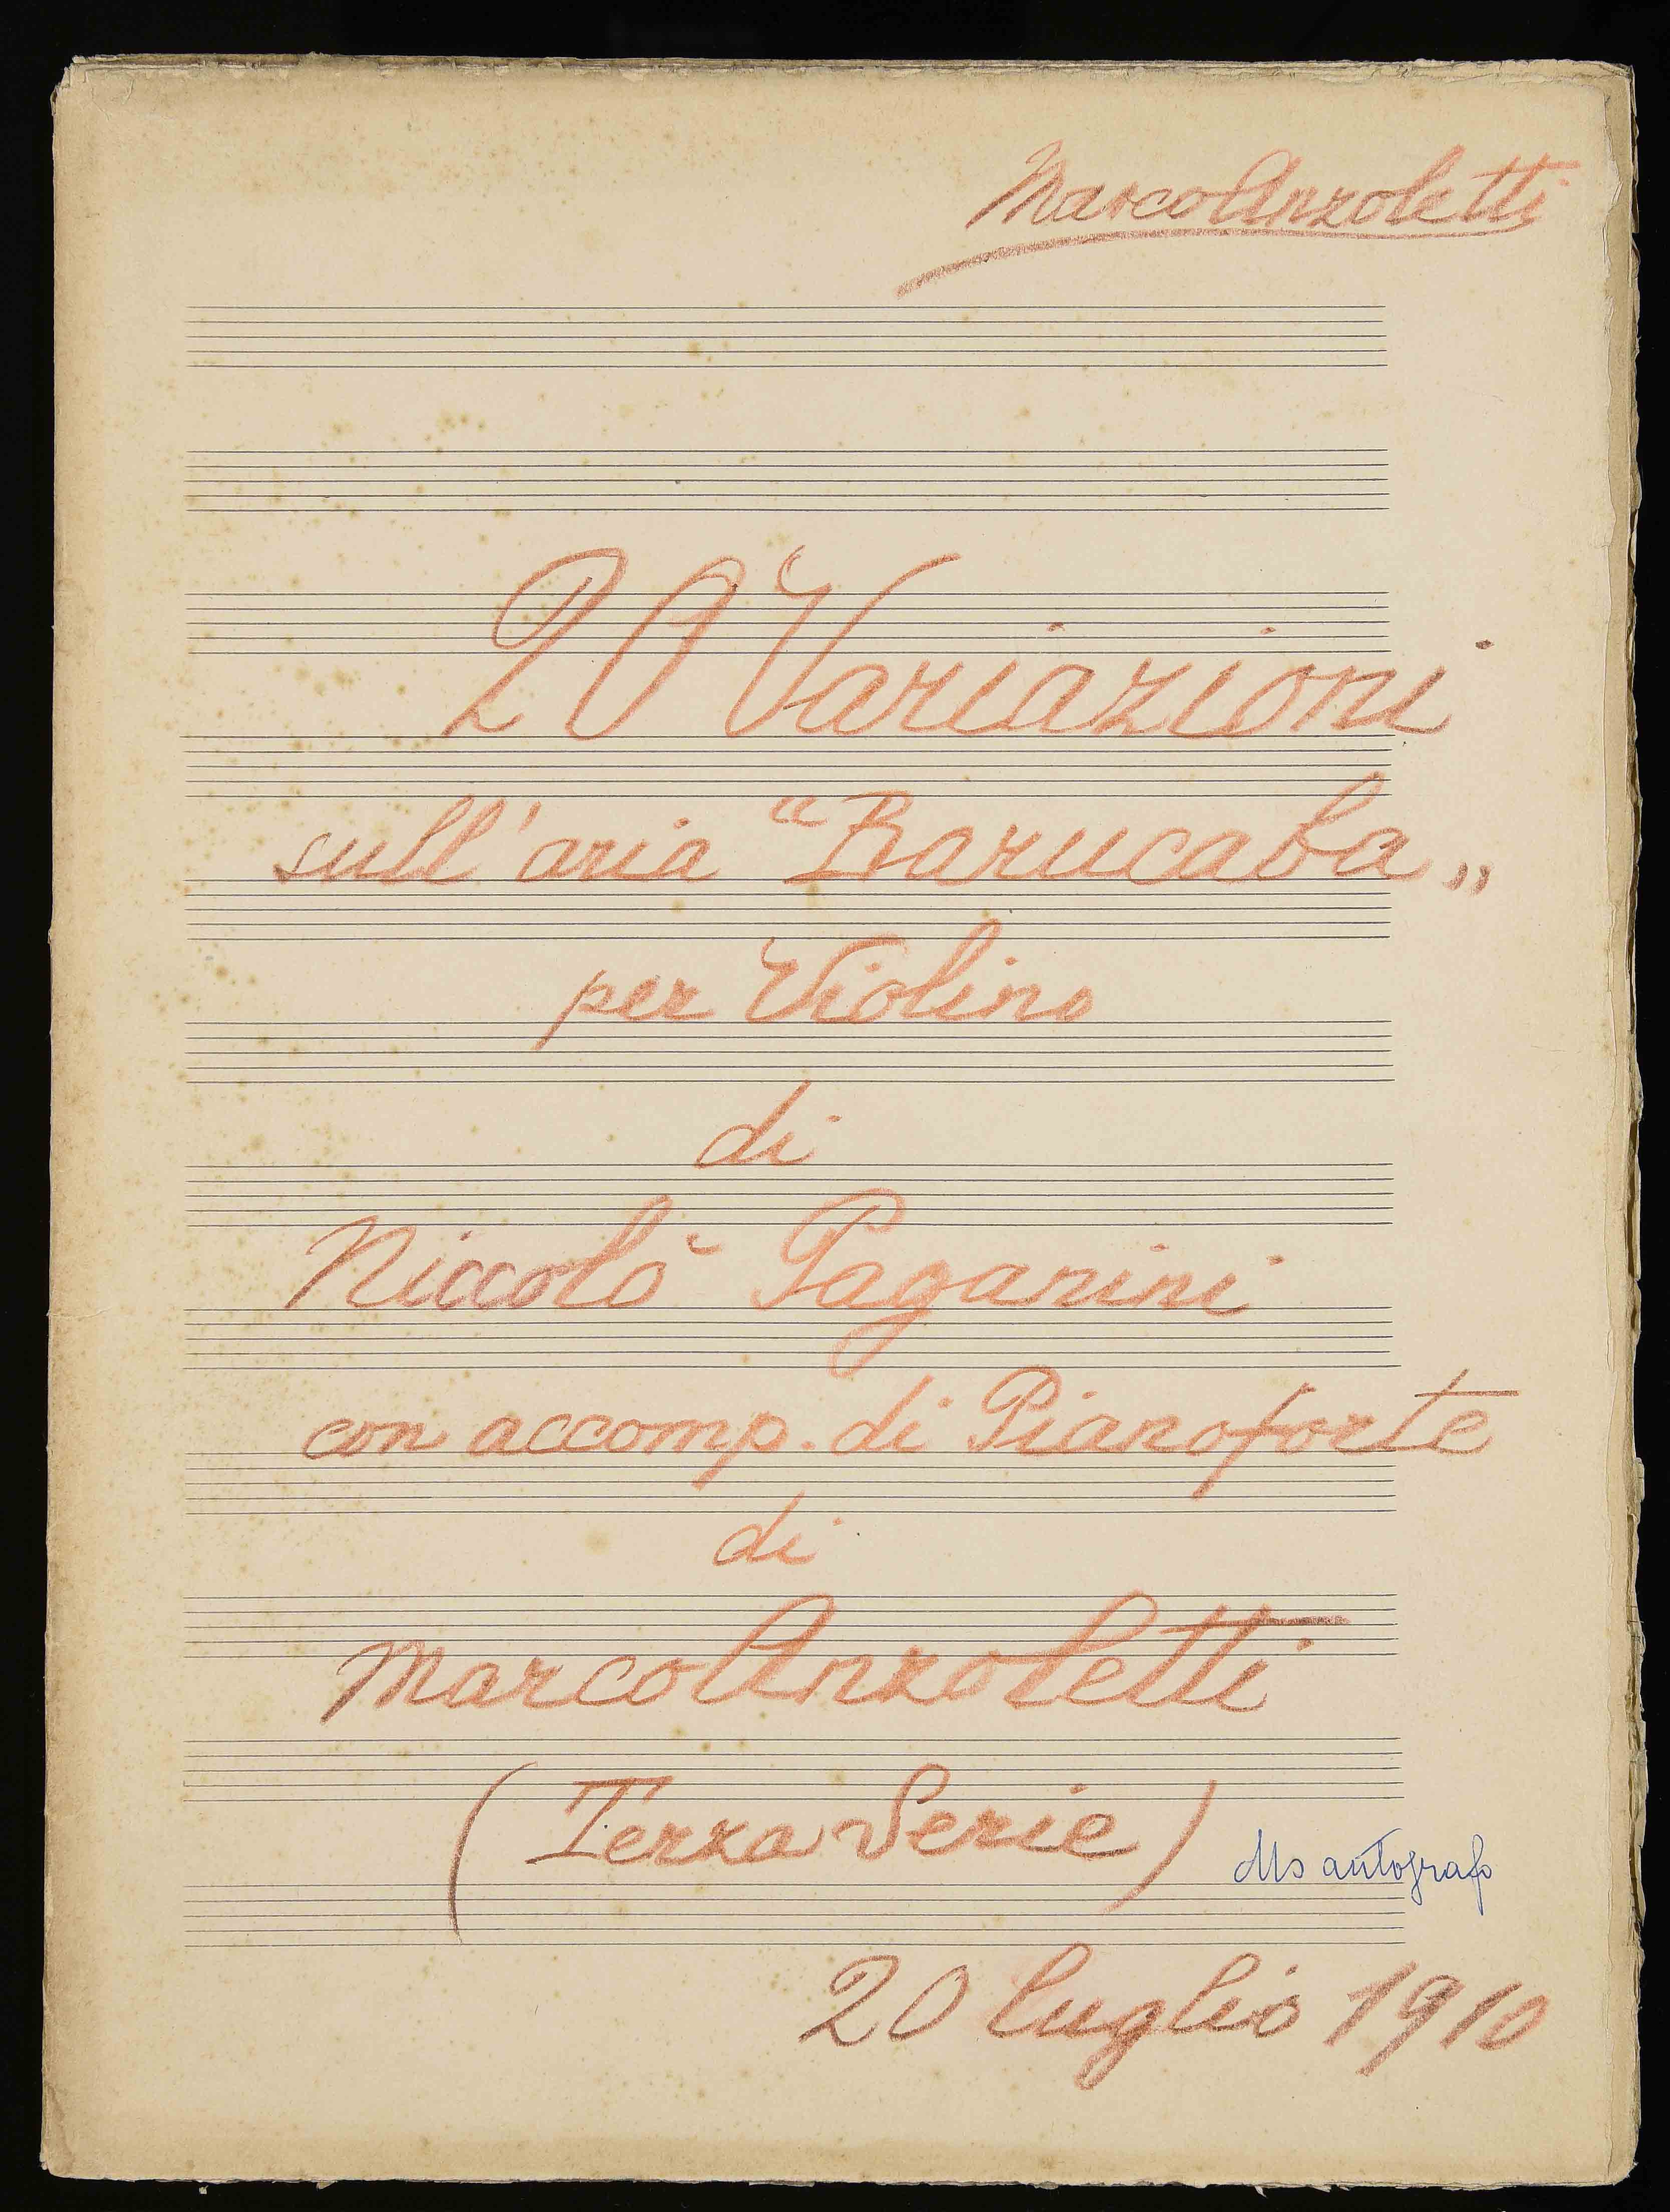 Marco Anzoletti
20 Variazioni
sull'aria “Barucaba„
per Violino
di
Niccolò Paganini
con accomp. di Pianoforte
di
Marco Anzoletti
(Terza Serie)
Ms autografo
20 luglio 1910